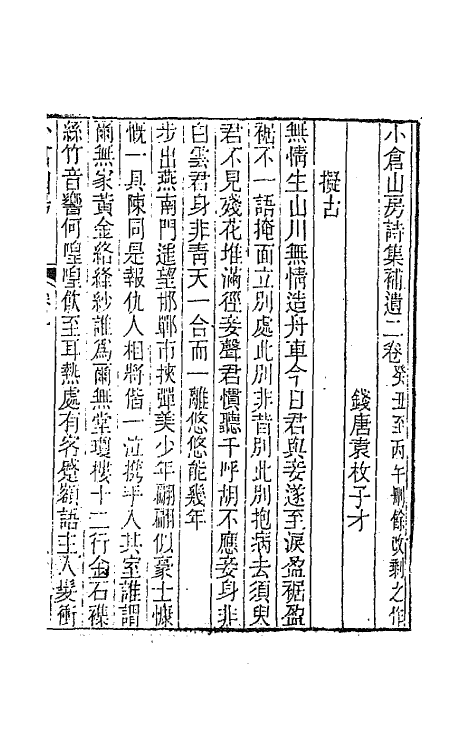 小倉山房詩集補遺二卷癸丑至丙午刪餘改剩之作
錢唐袁枚子才
擬古
無情生山川無情造舟車今日君與妾遂至淚盈裾盈
裾不一語掩面立別處此別非昔別此別抱病去須臾
君不見殘花堆滿徑妾聲君慣聽千呼胡不應妾身非
白雲君身非靑天一合而一離悠悠能幾年
步出燕南門遥望邯鄲市挾彈美少年翩翩似豪士慷
慨一具陳同是報仇人相將偕一泣攜手入其室誰謂
爾無家黃金絡絳紗誰爲爾無堂瓊樓十二行金石襍
絲竹音響何喤喤飲至耳熱處有客蹙額語主人髮衝